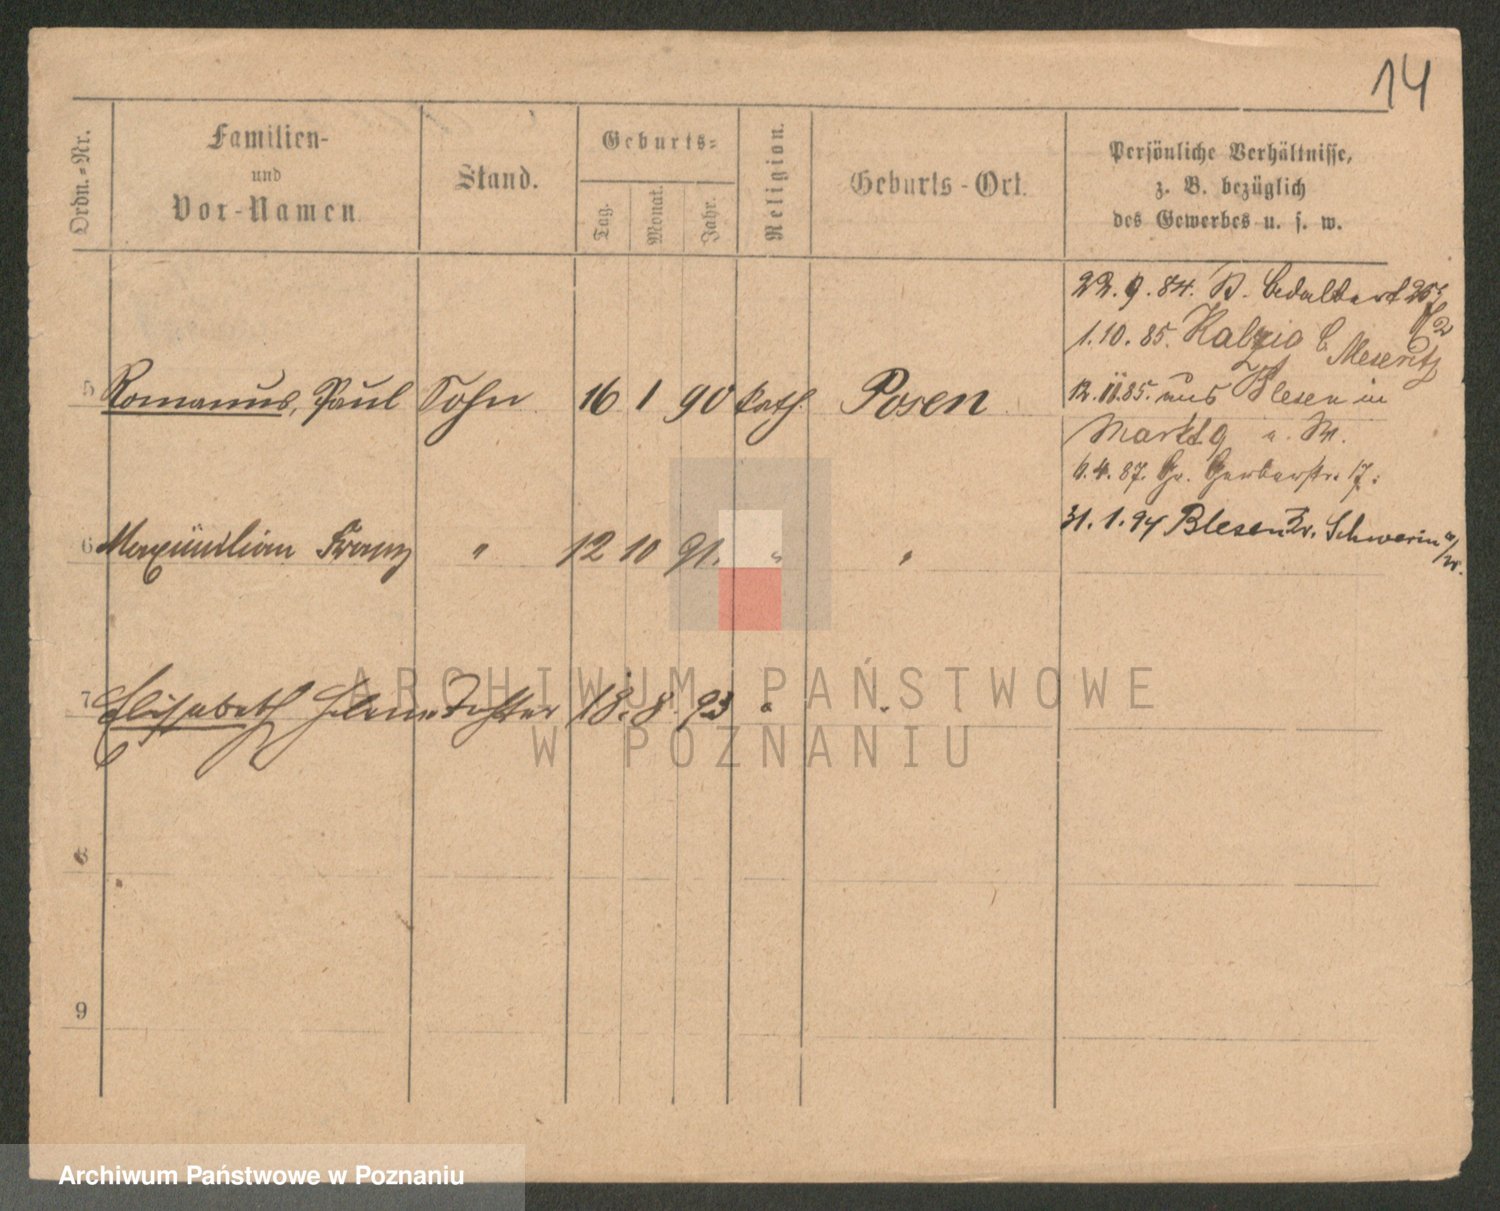 14
Ordn.-Nr.
Familien-
und
Vor-Namen.
Stand.
Geburts-
Tag.
Monat.
Jahr.
Religion.
Geburts-Ort.
Persönliche Verhältnisse,
z. B. bezüglich
des Gewerbes u. s. w.
22. 9. 84. St. Adalbert
1. 10. 85. Meseritz
5 Romanus, Paul Sohn 16 1 90 kath. Posen
12. 11. 85. aus Blesen in
Markt 9
6. 4. 87. Gr. Gerberstr. 17.
31. 1. 94 Blesen Kr. Schwerin a/W.
6 Maximilian Franz " 12 10 91. " "
7 Elisabeth Helene Tochter 18. 8. 93 " "
8
9
ARCHIWUM PAŃSTWOWE
W POZNANIU
Archiwum Państwowe w Poznaniu